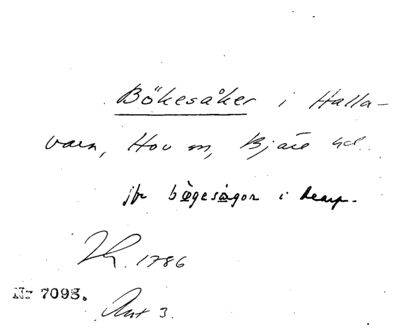 Bökesåker i Halla-
varn, Hov sn, Bjäre hd.
jfr bögesågor i
1786
Nr 7093. Akt 3.